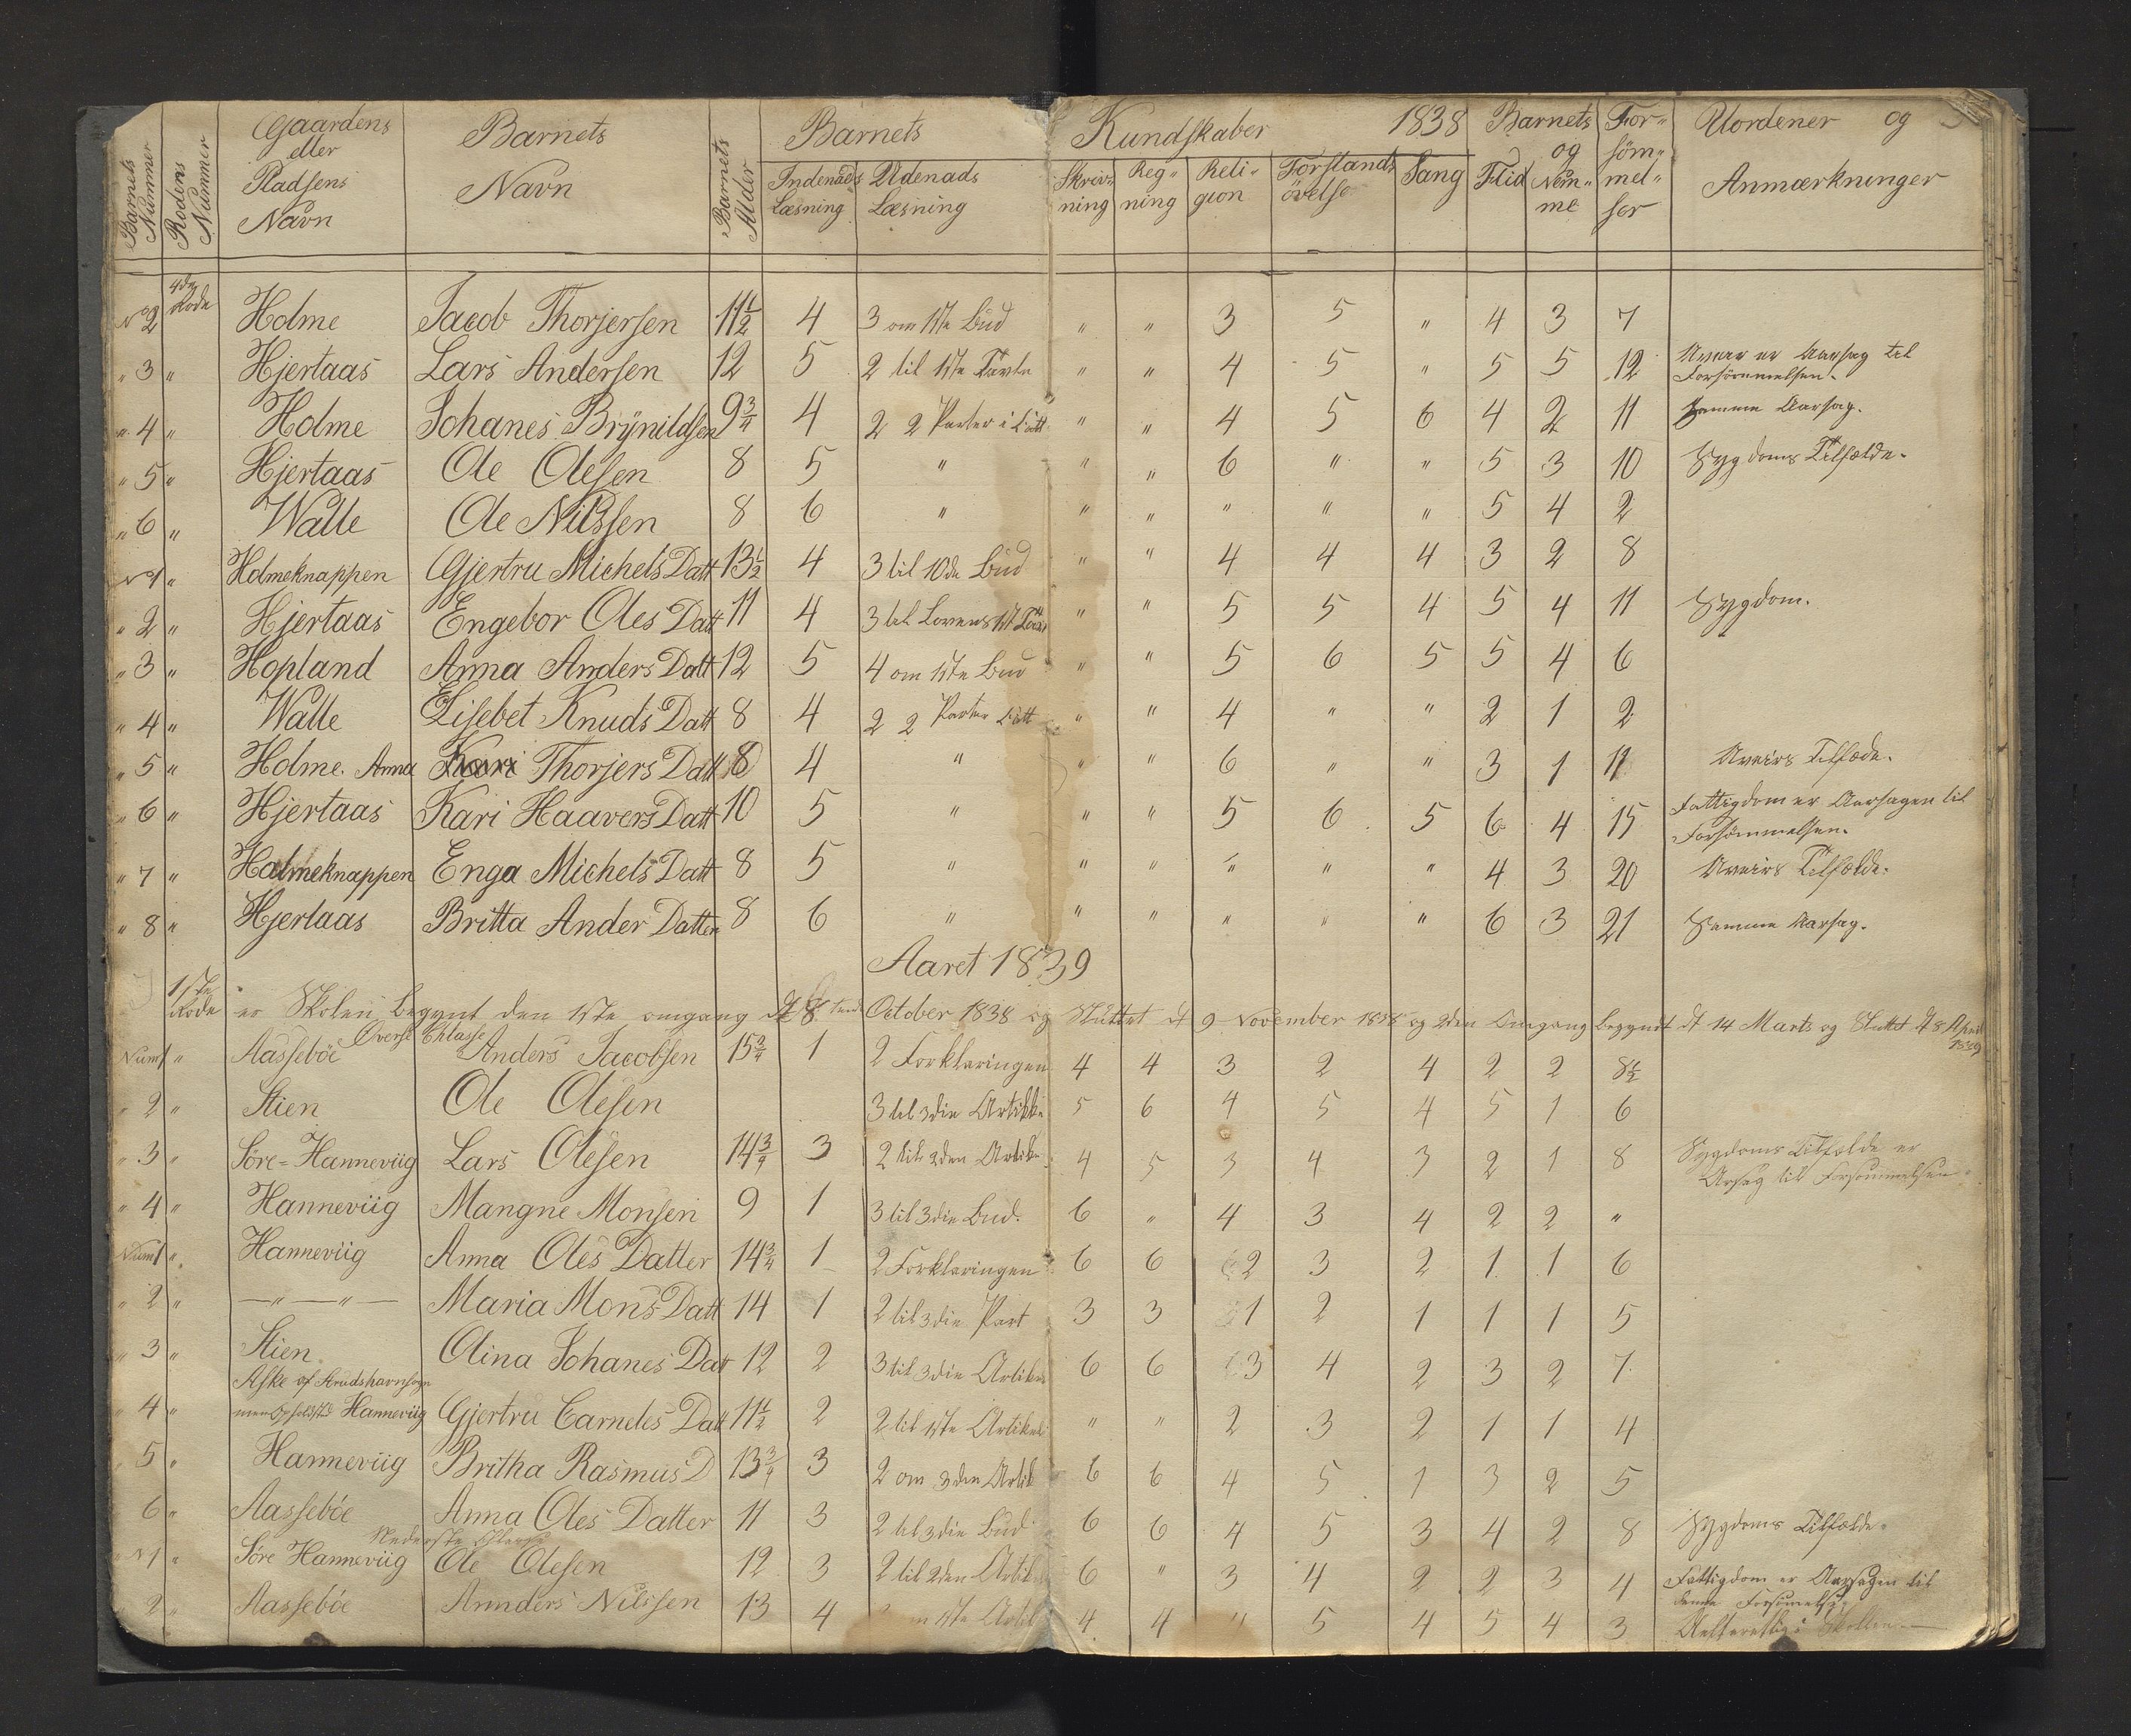 Barnets Nummer | Rodens Nummer | Gaardens eller Pladsens Navn | Barnets Navn | Barnets Alder | Barnets Kundskaber 1838 | Barnets | For- | Uordener og
Indenads Læsning | Udenads Læsning | Skriv- ning | Reg- ning | Reli- gion | Forstands övelse | Sang | Flid | og Nem- me | söm- mel- ser | Anmærkninger
No 2 4de Rode Holme Jacob Thorjersen 11½ 4 3 om 1ste Bud " " 3 5 " 4 3 7
" 3 " Hjertaas Lars Andersen 12 5 2 til 1ste Tavle " " 4 5 " 5 5 12 Uveir er Aarsag til Forsömmelsen.
" 4 " Holme Johanes Brÿnildsen 9¾ 4 2 2 Parter i " " 4 5 6 4 2 11 Samme Aarsag.
" 5 " Hjertaas Ole Olesen 8 5 " " " 6 " " 5 3 10 Sygdoms Tilfælde.
" 6 " Walle Ole Nilssen 8 6 " " " " " " 5 4 2
No 1 " Holmeknappen Gjertru Michels Datt 13½ 4 3 til 10de Bud " " 4 4 4 3 2 8
" 2 " Hjertaas Engebor Oles Datt 11 4 3 til Lovens 1st " " 5 5 4 5 4 11 Sygdom.
" 3 " Hopland Anna Anders Datt 12 5 4 om 1ste Bud " " 5 6 5 5 4 6
" 4 " Walle Lisebet Knuds Datt 8 4 2 2 Parter " " 4 " " 2 1 2
" 5 " Holme. Anna Kari Thorjers Datt 8 4 " " " 6 " " 3 1 11 Uveirs Tilfæde.
" 6 " Hjertaas Kari Haavers Datt 10 5 " " " 5 6 5 6 4 15 Fattigdom er Aarsagen til Forsömmelsen.
" 7 " Holmeknappen Enga Michels Datt 8 5 " " " " " " 4 3 20 Uveirs Tilfælde.
" 8 " Hjertaas Britta Ander Datter 8 6 " " " " " " 6 3 21 Samme Aarsag.
Aaret 1839
1ste Rode er Skolen begynt den 1ste omgang d 8 October 1838 og Sluttet d 9 November 1838 og 2den Omgang begyndt d 14 Marts og Sluttet d 8 April 1839
Överste Chlasse
Num 1 " Aasseböe Anders Jacobsen 15¾ 1 2 Forklaringen 4 4 3 2 4 2 2 8½
" 2 " Stien Ole Olesen 3 til 3die Artikke 5 6 4 5 4 5 1 6
" 3 " Söre=Hanneviig Lars Olesen 14¾ 3 2 til 2den Artike 4 5 3 4 3 2 1 8 Sygdoms Tilfælde er Arsag til Forsömmelsen.
" 4 " Hanneviig Mangne Monsen 9 1 3 til 3die Bud. 6 " 4 3 4 2 2 "
Num 1 " Hanneviig Anna Oles Datter 14¾ 1 2 Forklaringen 6 6 2 3 2 1 1 6
" 2 " — " — " — Maria Mons Datt 14 1 2 til 3die Part 3 3 1 2 1 1 1 5
" 3 " Stien Olina Johanes Dat 12 2 3 til 3die Artikel 6 6 3 4 2 3 2 7
Aske af
" 4 " Hanneviig Gjertru Carneles Datt 11½ 2 2 til 1ste Artikel " " 2 3 2 1 1 4
5 " Hanneviig Britha Rasmus D 13¾ 3 2 om 3den Artik 6 6 4 5 1 3 2 5
6 " Aasseböe Anna Oles Datter 11 3 2 til 3die Bud 6 6 4 5 3 4 2 8 Sygdoms Tilfælde.
Nederste Chlasse
N 1 " Söre Hanneviig Ole Olesen 12 3 2 til 2den Artik 6 " 3 4 2 2 3 4 Fattigdom er Aarsagen til denne Forsömelse
2 " Aasseböe Annders Nilssen 13 4 om 1ste Artik 4 4 " 5 4 5 4 3 i Skollen.